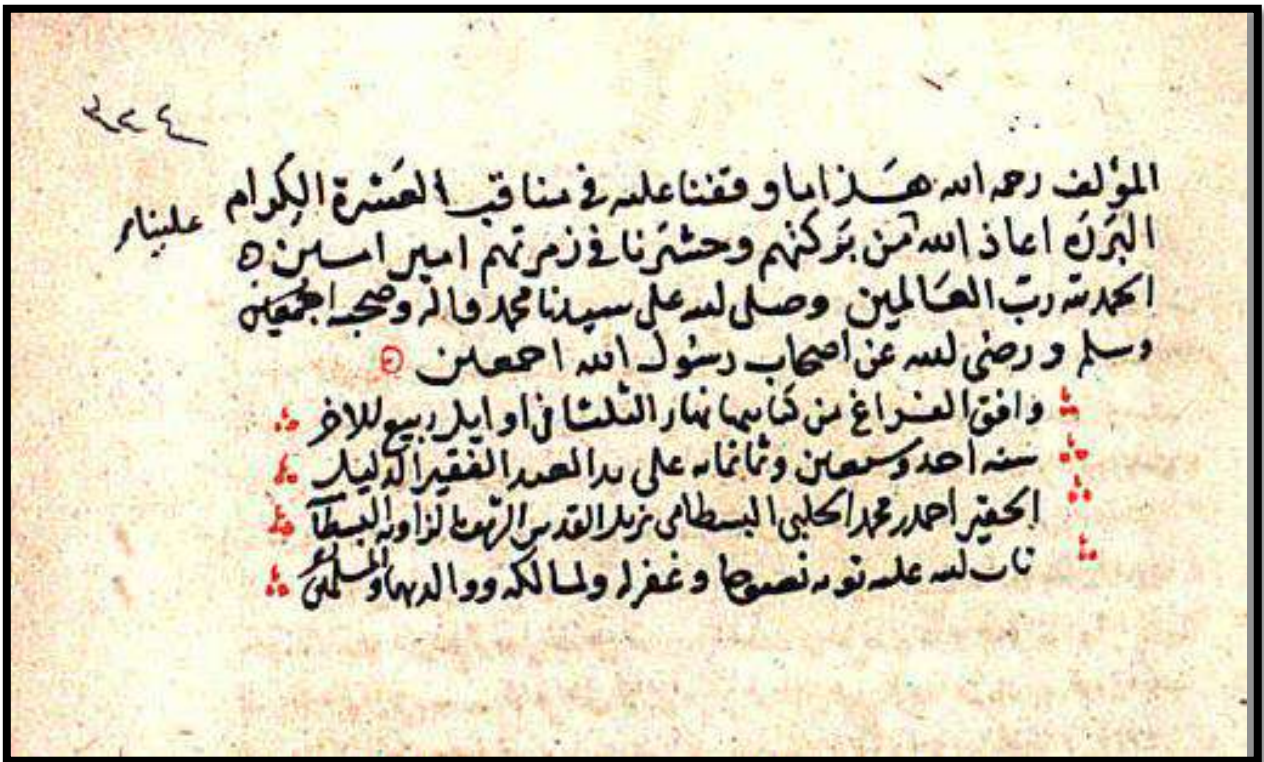 ٣٢٤
المؤلف رحمه الله هذا ما وقفنا عليه في مناقب العشرة الكرام
علينا
البررة اعاذ الله من بركتهم وحشرنا في زمرتهم امين امين ه
الحمد لله رب العالمين وصلى الله على سيدنا محمد واله وصحبه اجمعين
وسلم ورضى الله عن اصحاب رسول الله اجمعين
وافق الفراغ من كتابها نهار الثلثا في اوايل ربيع الاخر
سنه احد وسبعين وثمانمايه على يد العبد الفقير الذليل
الحقير احمد بن محمد الحلبي البسطامى نزيل القدس الشريف بالزاويه البسطا
تاب الله عليه توبه نصوحا وغفر له ولمالكه ووالديهما والمسلمين